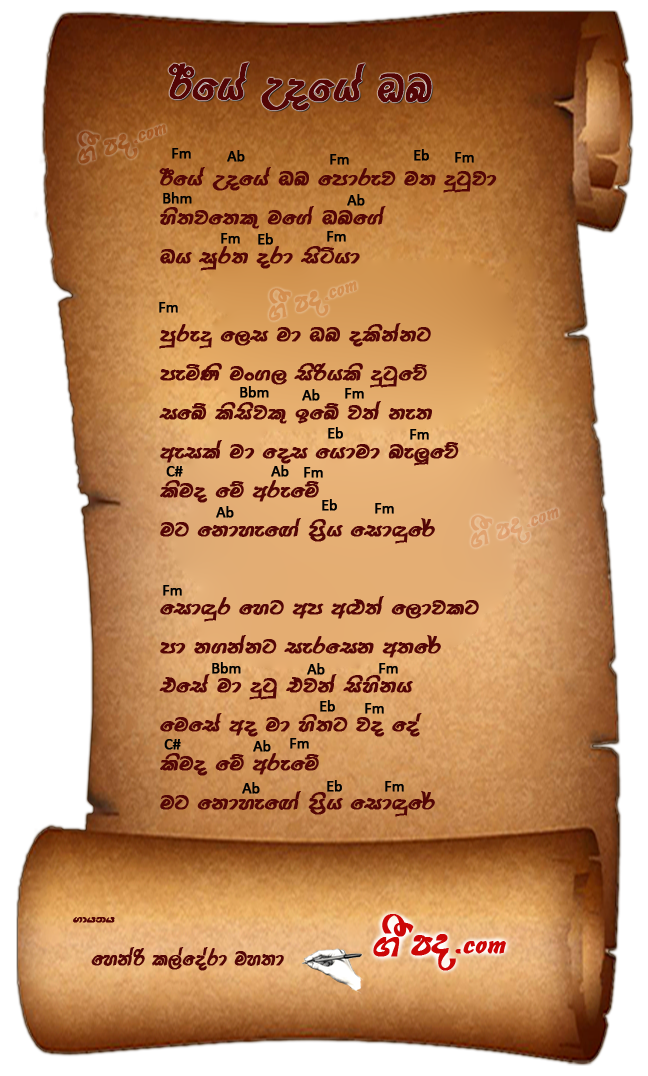 ඊයේ උදයේ ඔබ
ගී පද.com
Fm Ab Fm Eb Fm
ඊයේ උදයේ ඔබ පොරුව මත දුටුවා
Bhm Ab
හිතවතෙකු මගේ ඔබගේ
Fm Eb Fm
ඔය සුරත දරා සිටියා
ගී පද.com
Fm
පුරුදු ලෙස මා ඔබ දකින්නට
පැමිණි මංගල සිරියකි දුටුවේ
Bbm Ab Fm
සබේ කිසිවකු ඉබේ වත් නැත
Eb Fm
ඇසක් මා දෙස යොමා බැලුවේ
C# Ab Fm
කිමද මේ අරුමේ
Ab Eb Fm
මට නොහැඟේ ප්‍රිය සොඳුරේ
ගී පද.com
Fm
සොඳුර හෙට අප අළුත් ලොවකට
පා නගන්නට සැරසෙන අතරේ
Bbm Ab Fm
එසේ මා දුටු එවන් සිහිනය
Eb Fm
මෙසේ අද මා හිතට වද දේ
C# Ab Fm
කිමද මේ අරුමේ
Ab Eb Fm
මට නොහැඟේ ප්‍රිය සොඳුරේ
ගායනය
හෙන්රි කල්දේරා මහතා
ගී පද.com